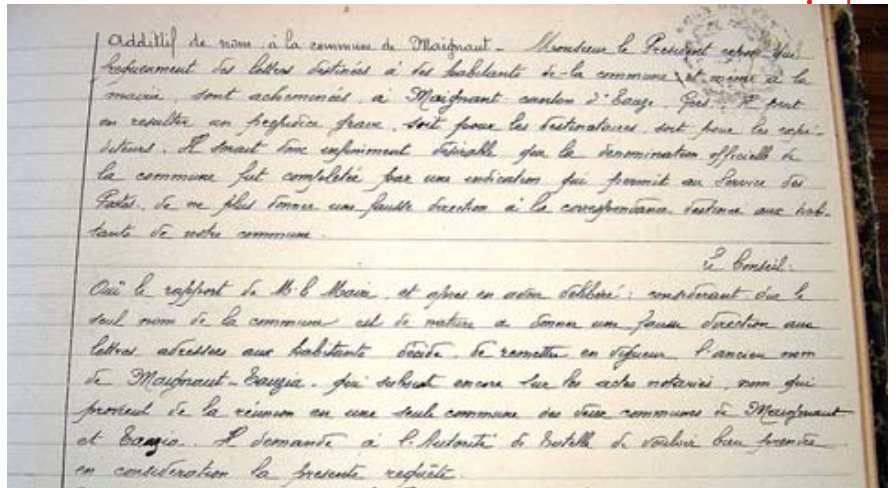 additif de nom à la commune de Maignaut - Monsieur le Président expose que
frequemment des lettres destinées à des habitants de la commune et même à la
mairie, sont acheminées à Maignant canton d'Eauze, Gers. Il peut
en résulter un prejudice grave, soit pour les destinataires, soit pour les expé-
diteurs. Il serait donc infiniment désirable que la denomination officielle de
la commune fut completée par une indication qui permit au Service des
Postes, de ne plus donner une fausse direction à la correspondance destinée aux habi-
tants de notre commune.
Le Conseil:
Ouï le rapport de M. le Maire, et apres en avoir délibéré: considerant que le
seul nom de la commune est de nature a donner une fausse direction aux
lettres adressées aux habitants décide, de remettre en vigueur l'ancien nom
de Maignaut-Tauzia, qui subsiste encore sur les actes notariés, nom qui
provient de la réunion en une seule commune des deux communes de Maignaut
et Tauzia. Il demande à l'Autorité de tutelle de vouloir bien prendre
en consideration la presente requête.